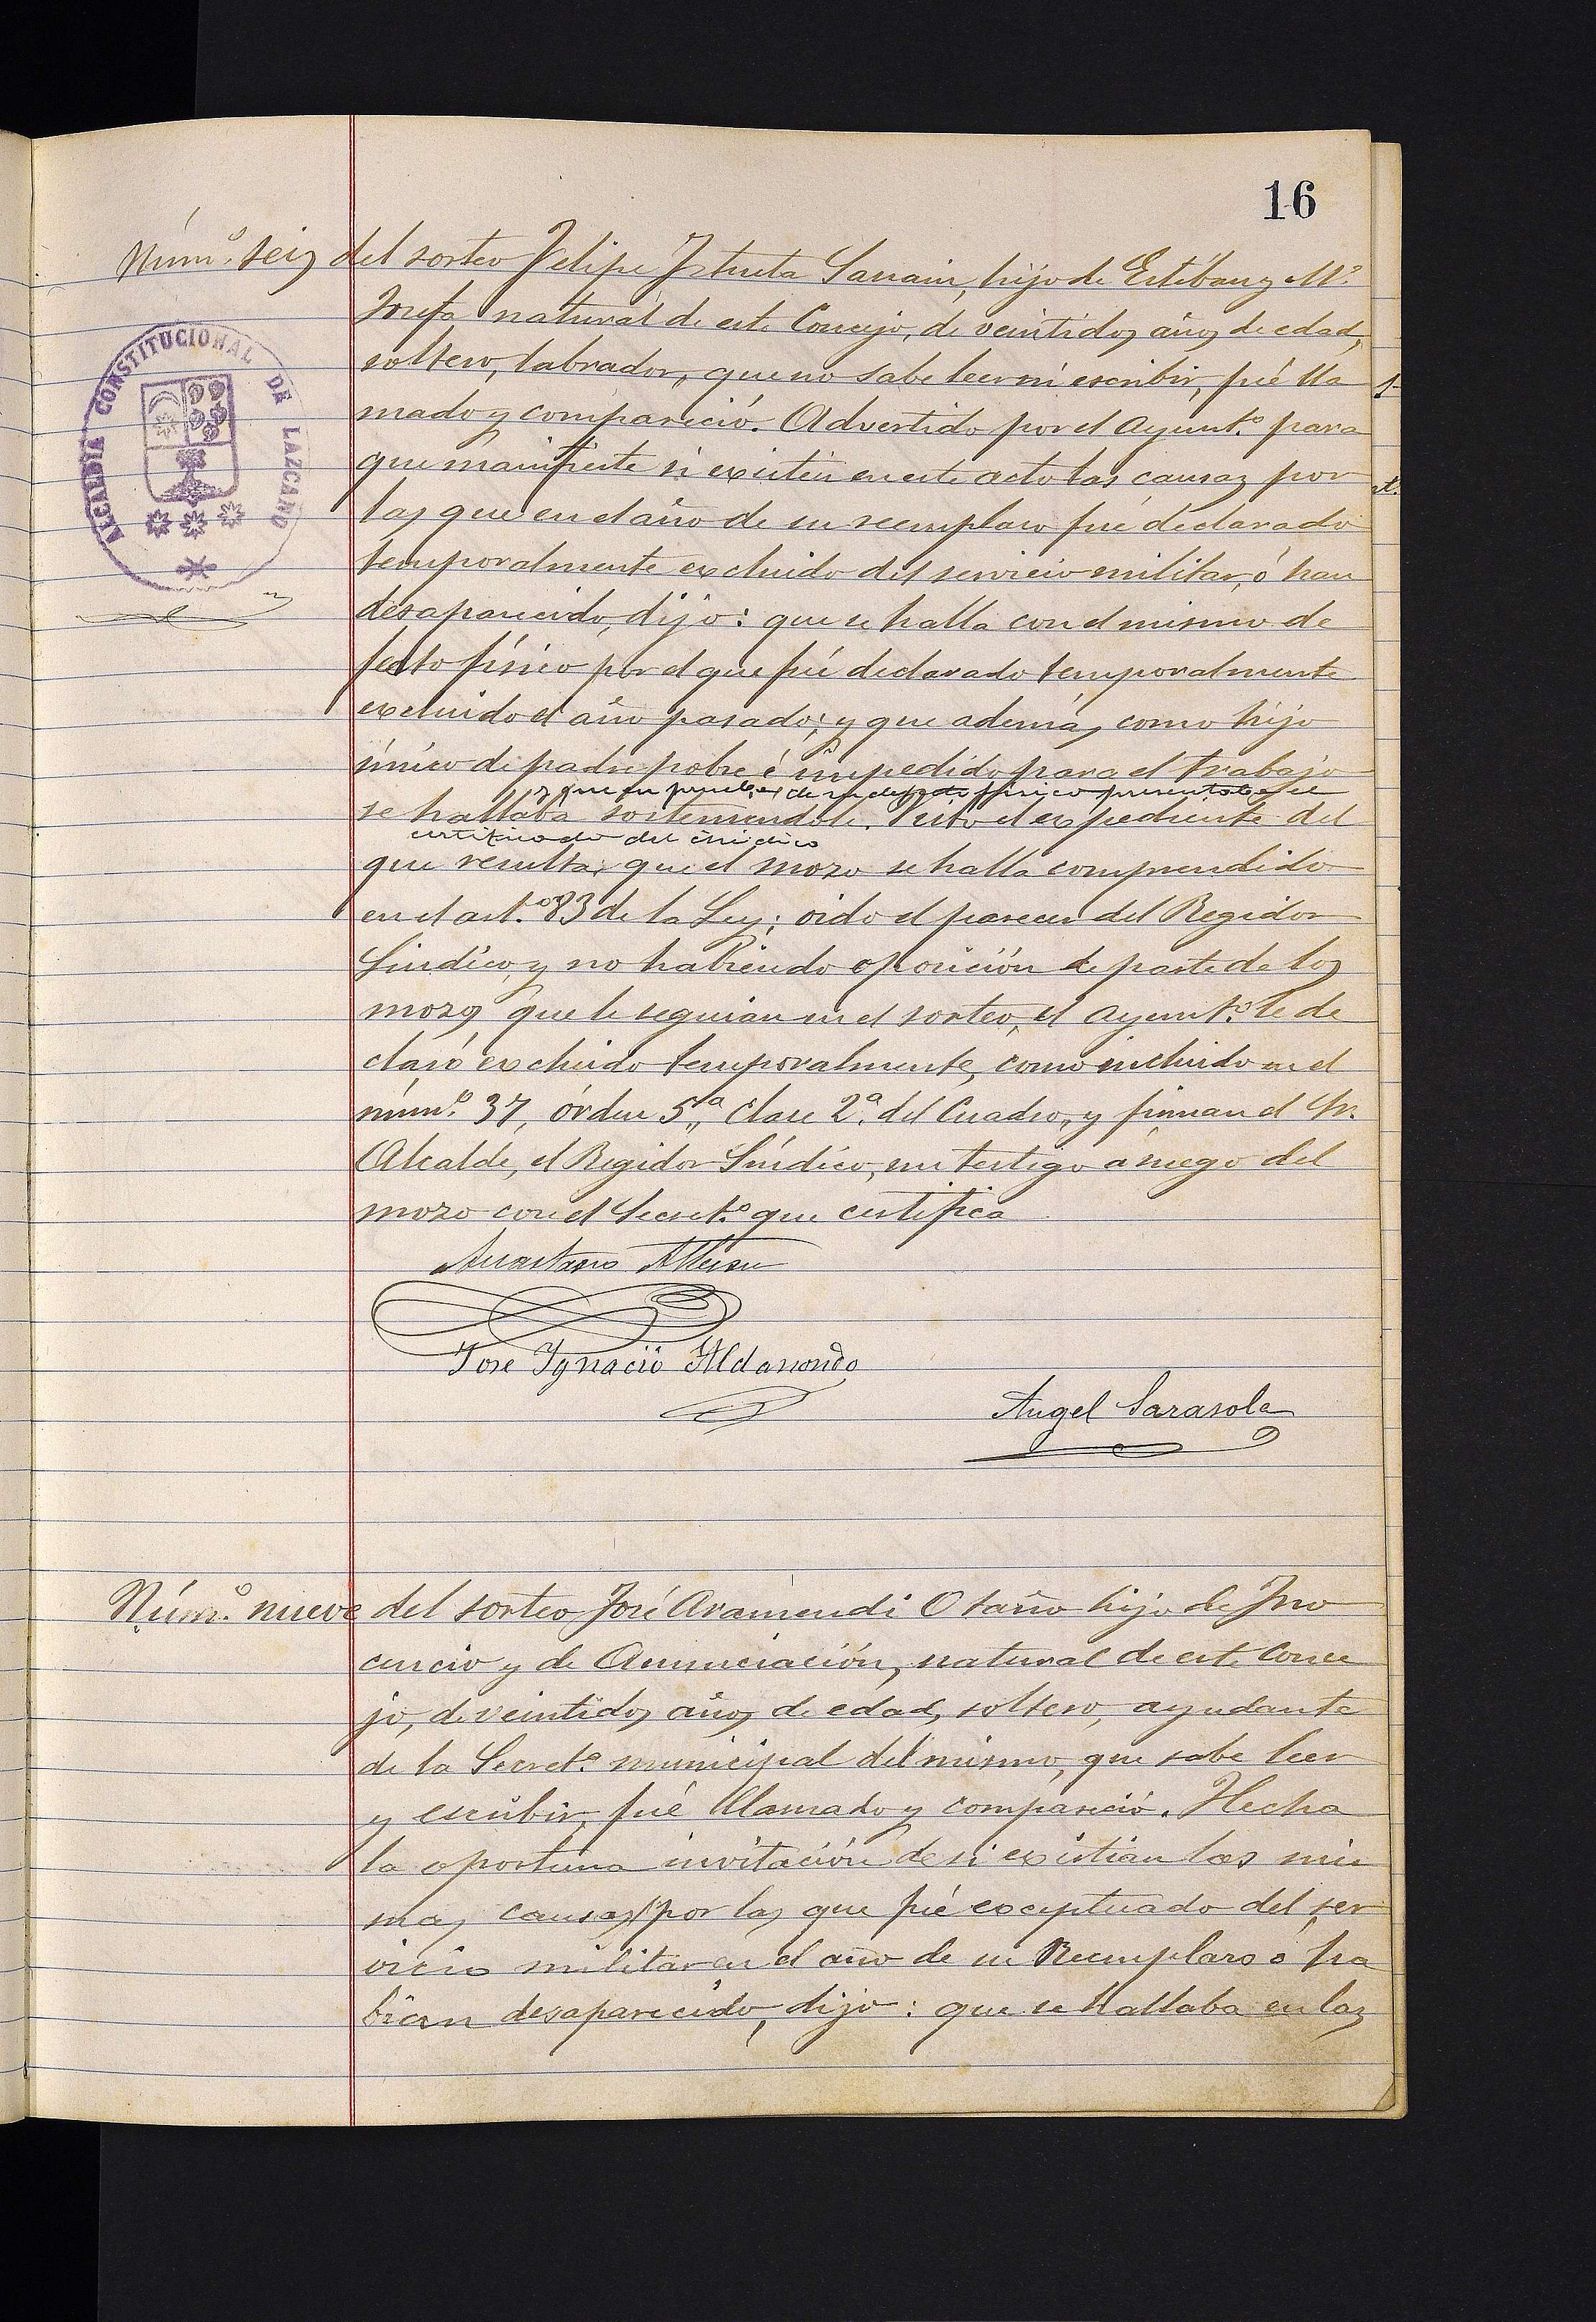 16
Núm.º seis del sorteo Felipe Iztueta Sarrain, hijo de Estéban y M.ª
Josefa natural de este Concejo, de veintidos años de edad,
soltero, labrador, que no sabe leer ni escribir, fué lla
mado y compareció. Advertido por el Ayunt.º para
que manifieste si existen en este acto las causas por
las que en el año de su reemplazo fué declarado
temporalmente excluido del servicio militar, ó han
desaparecido, dijo: que se halla con el mismo de
fecto físico por el que fué declarado temporalmente
excluido el año pasado; y que además, como hijo
único de padre pobre é impedido para el trabajo
y que en prueba de su defecto físico presentaba el
se hallaba sosteniendole. Visto el expediente del
certificado del médico
que resulta, que el mozo se halla comprendido
en el art.º 83 de la Ley; oido el parecer del Regidor
Síndico, y no habiendo oposición de parte de los
mozos que le seguian en el sorteo, el Ayunt.º le de
claró excluido temporalmente, como incluido en el
núm.º 37, órden 5.ª, Clase 2.ª del Cuadro, y firman el Sr.
Alcalde, el Regidor Síndico, un testigo á ruego del
mozo con el Secret.º que certifica
Anastasio
José Ignacio Aldasoro
Angel Sarasola
ALCALDIA CONSTITUCIONAL DE LAZCANO
Núm.º nueve del sorteo José Aramendi Otaño hijo de Ino
cencio y de Anunciación, natural de este Conce
jo, de veintidos años de edad, soltero, ayudante
de la Secret.ª municipal del mismo, que sabe leer
y escribir, fué llamado y compareció. Hecha
la oportuna invitación de si existian las mis
mas causas por las que fué exceptuado del ser
vicio militar en el año de su Reemplazo ó ha
bian desaparecido, dijo: que se hallaba en las